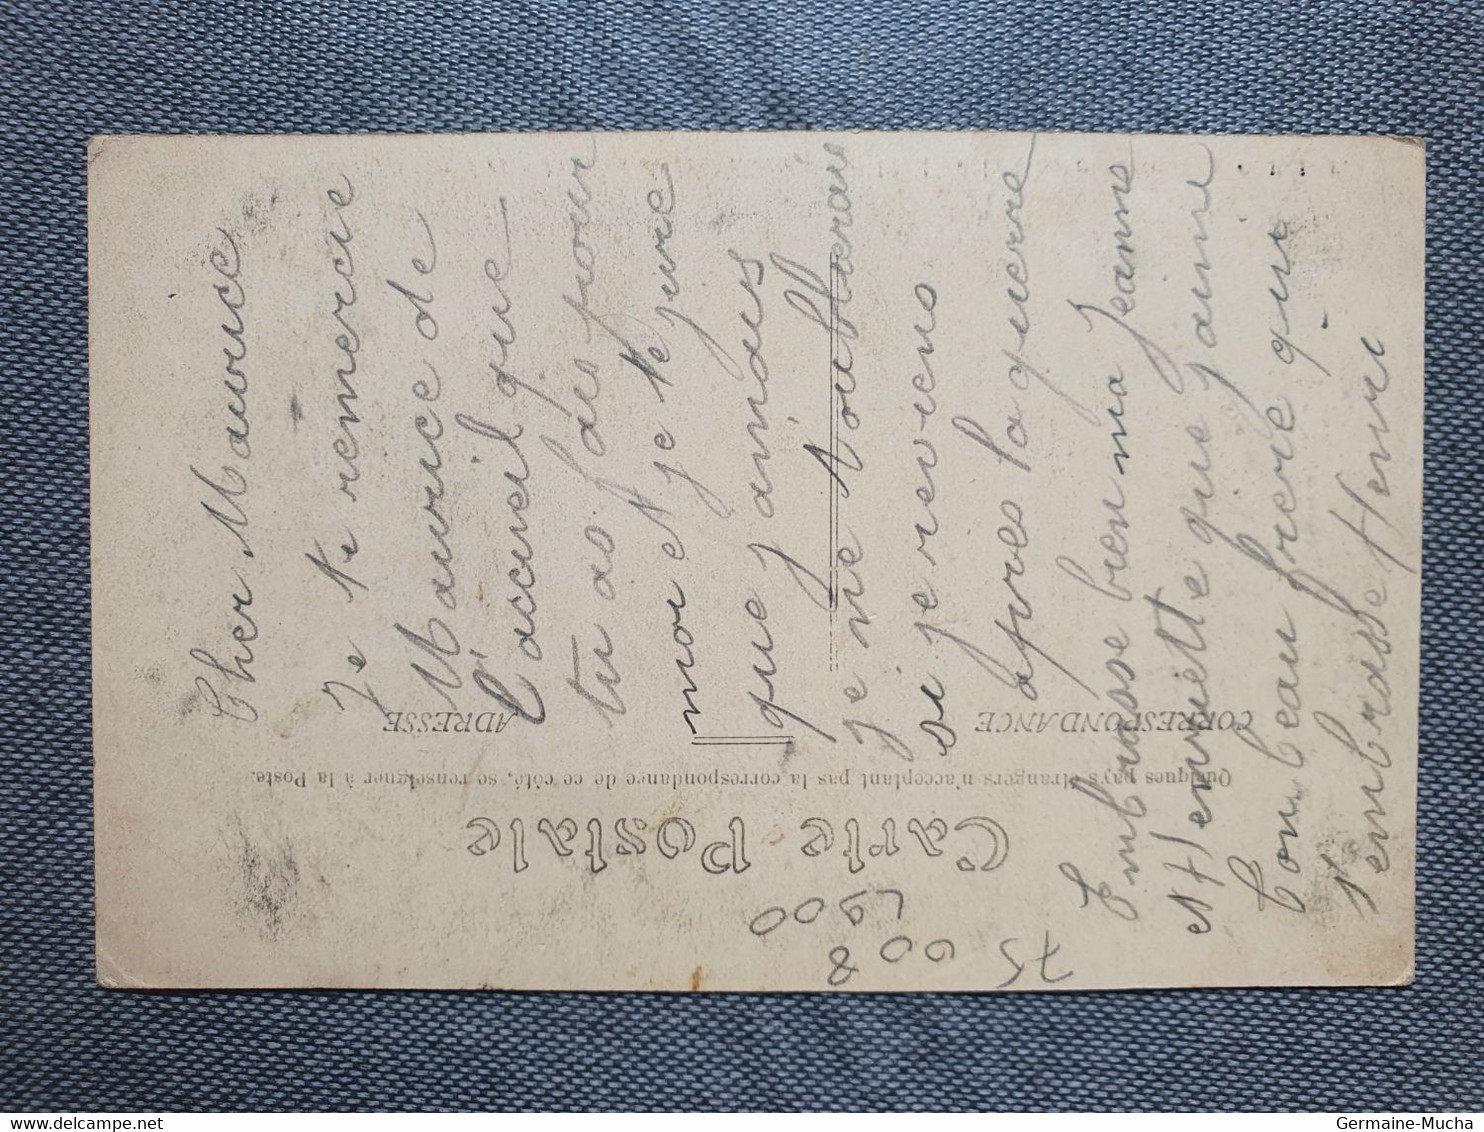 Cher Maurice
Je te remercie
Maurice de
l'acueil que
tu as fais pour
moi et je te jure
que jamais
je ne t'oublierais
si je reviens
apres la guerre
Embrasse bien ma Jeanne
et Henriette que j'aime
Ton beau frere qui
t'embrasse Henri
Carte Postale
Quelques pays étrangers n'acceptant pas la correspondance de ce côté, se renseigner à la Poste.
CORRESPONDANCE
ADRESSE
75
008
Germaine-Mucha
delcampe.net